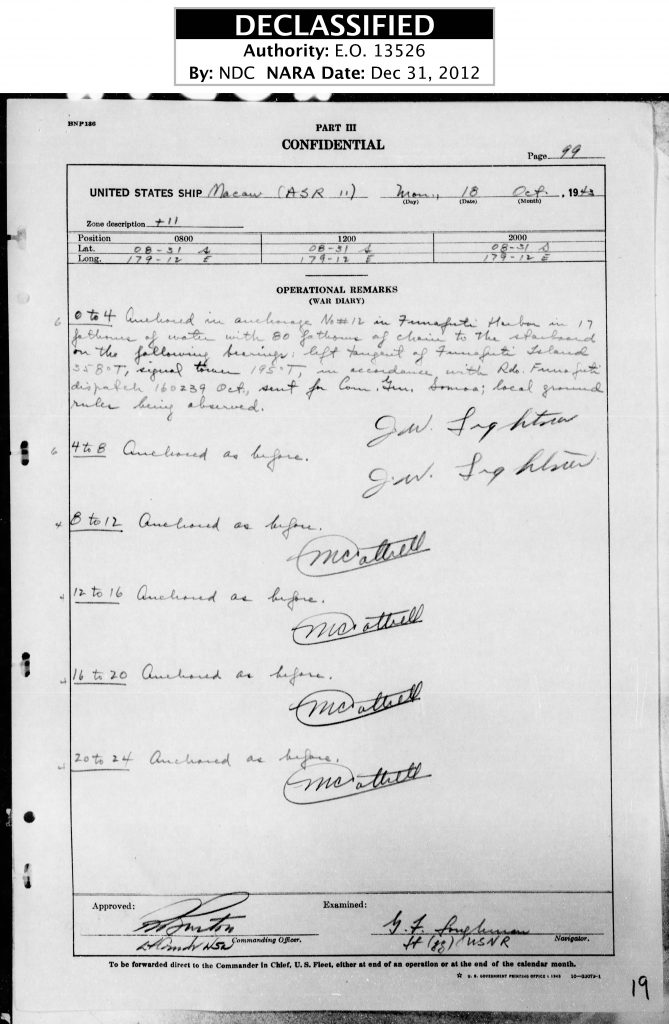 DECLASSIFIED
Authority: E.O. 13526
By: NDC NARA Date: Dec 31, 2012
BNP136
PART III
CONFIDENTIAL
Page 99
UNITED STATES SHIP Macaw (ASR 11) Mon., 18 Oct., 1943
(Day) (Date) (Month)
Zone description +11
Position 0800 1200 2000
Lat. 08-31 S 08-31 S 08-31 S
Long. 179-12 E 179-12 E 179-12 E
OPERATIONAL REMARKS
(WAR DIARY)
0 to 4 Anchored in anchorage No #12 in Funafuti Harbor in 17
fathoms of water with 80 fathoms of chain to the starboard
on the following bearings: left tangent of Funafuti Island
358°T, signal tower 195°T, in accordance with Rdo. Funafuti
dispatch 160239 Oct, sent for Com. Gen. Samoa; local ground
rules being observed.
J.W.
4 to 8 Anchored as before.
J.W.
8 to 12 Anchored as before.
12 to 16 Anchored as before.
16 to 20 Anchored as before.
20 to 24 Anchored as before.
Approved: Examined:
Burton G. F. Loughman
Lt Comdr USN Commanding Officer. Lt (jg) USNR Navigator.
To be forwarded direct to the Commander in Chief, U.S. Fleet, either at end of an operation or at the end of the calendar month.
☆ U. S. GOVERNMENT PRINTING OFFICE : 1943
19